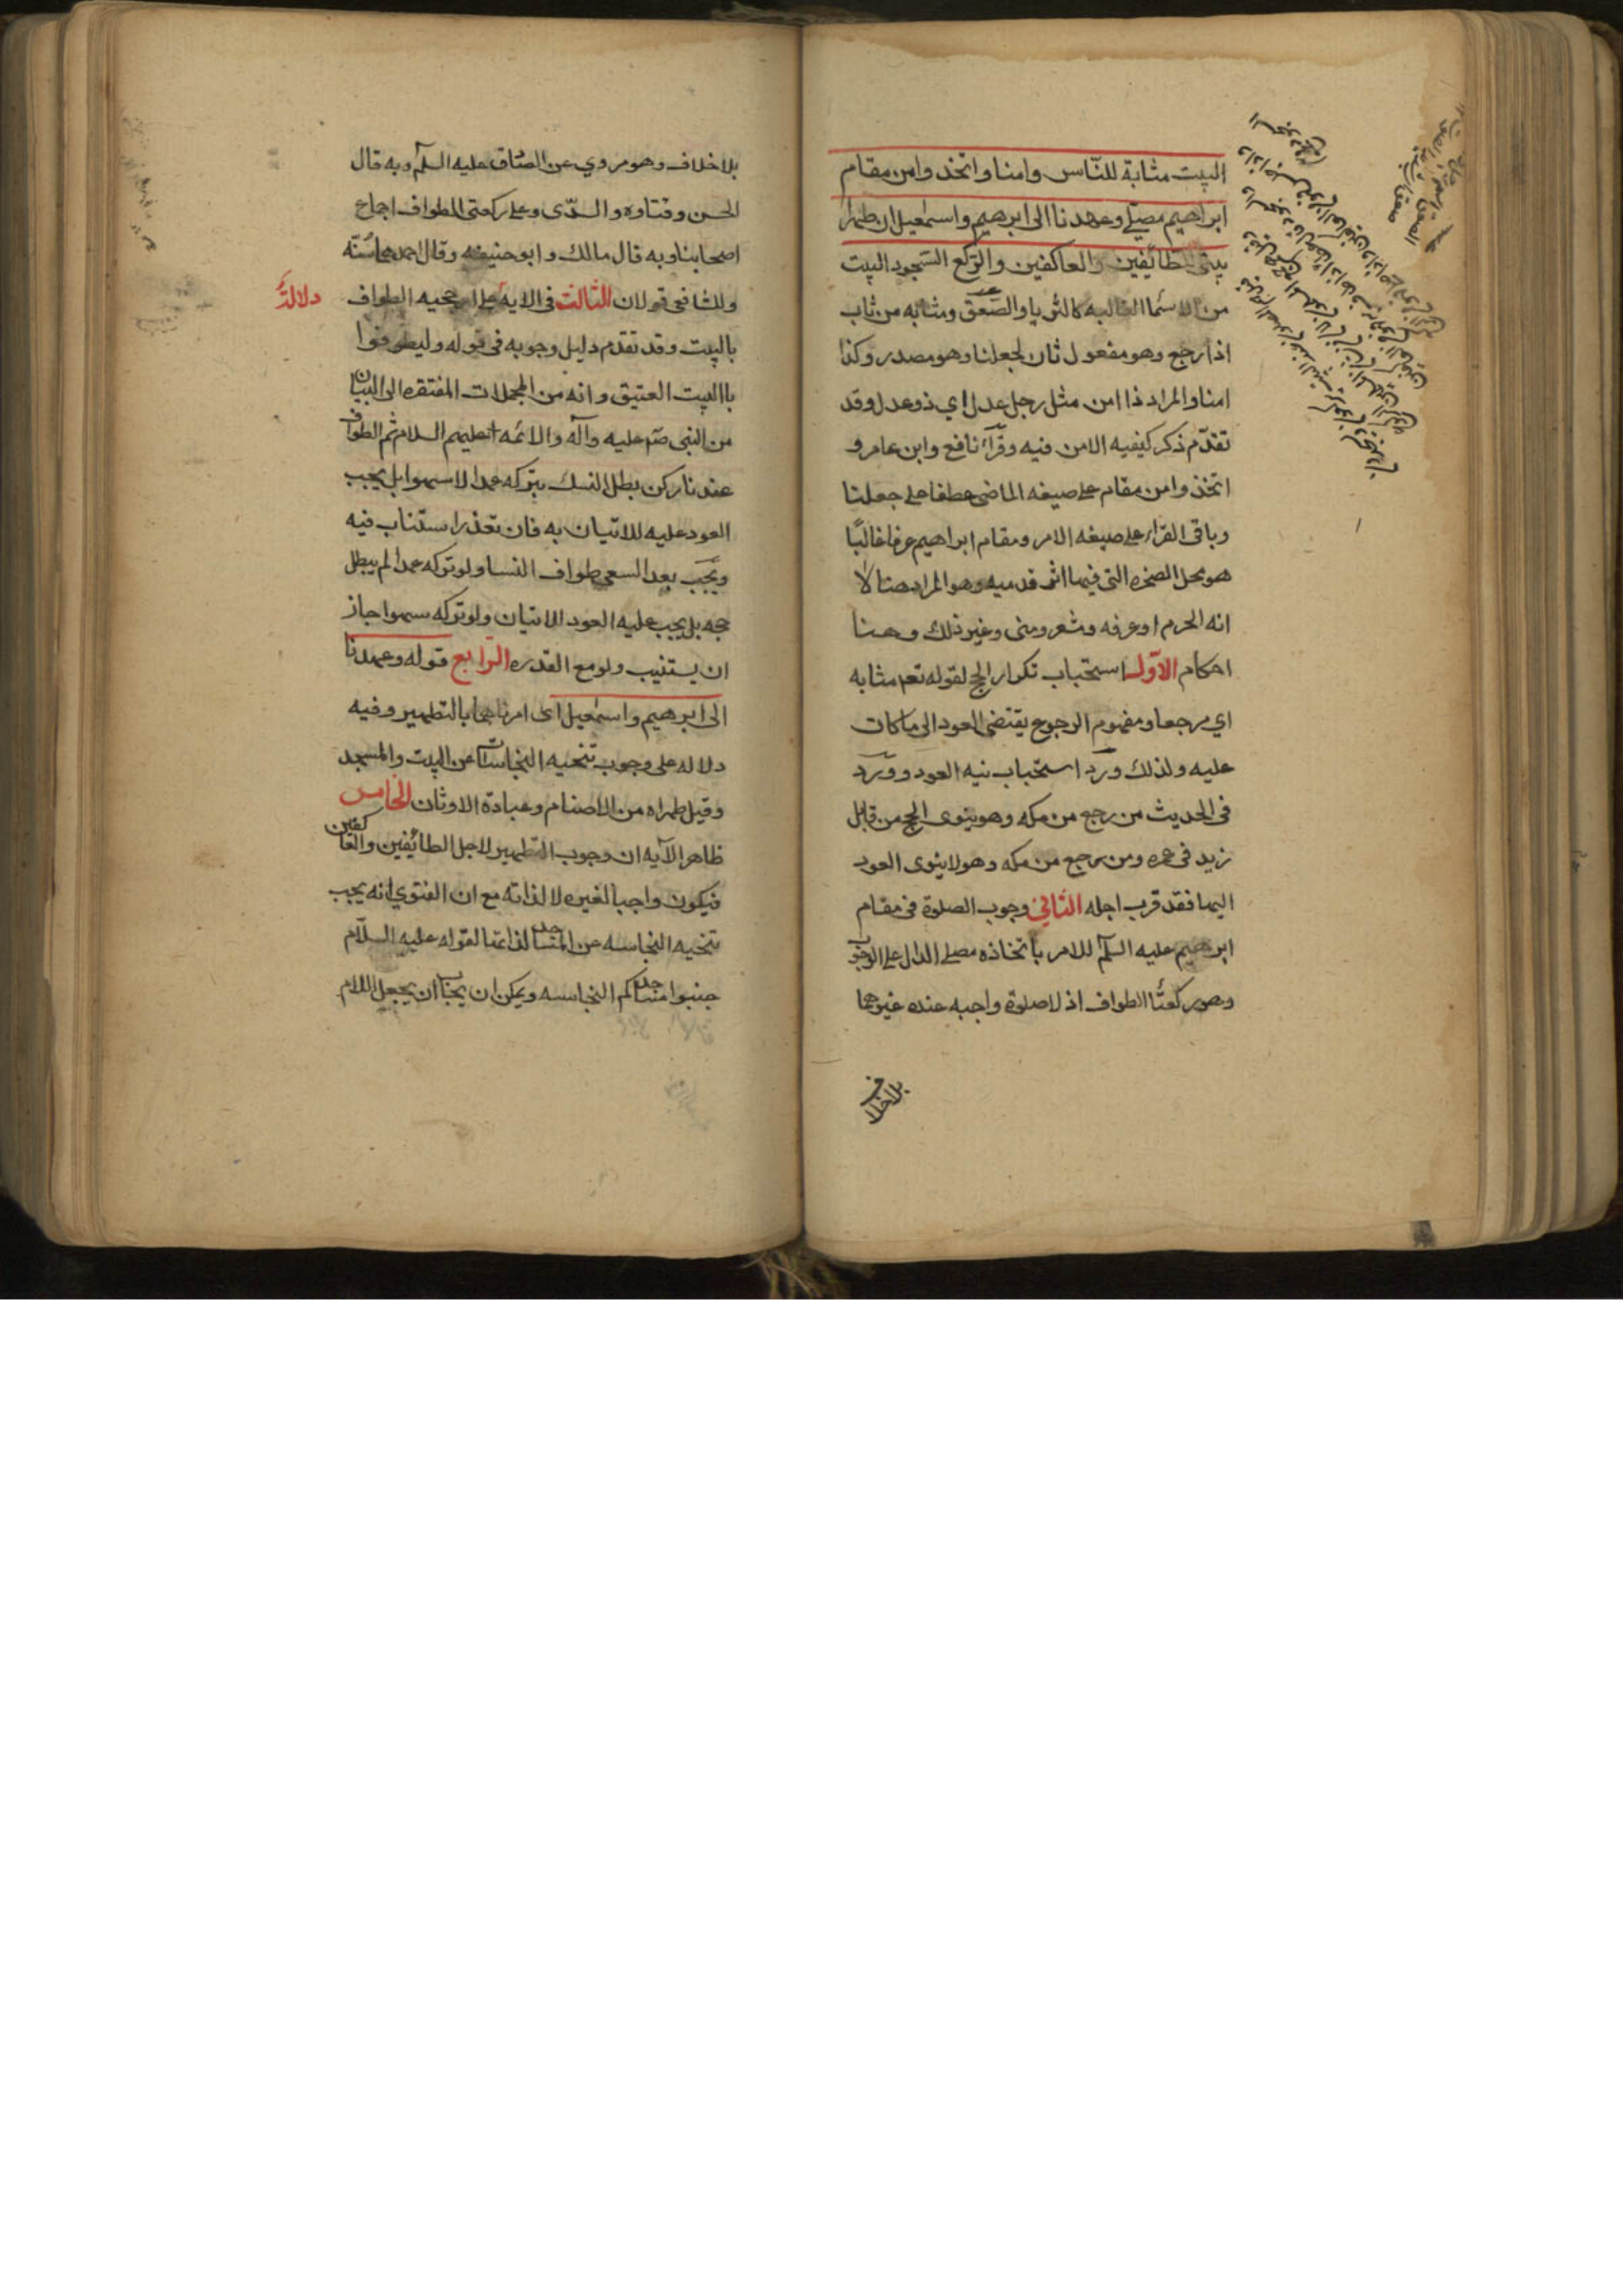 البيت مثابة للنّاس وامنا واتخذوا من مقام
ابراهيم مصلّى وعهدنا الى ابرهيم واسمعيل ان طهرا
بيتى للطائفين والعاكفين والرّكع السّجود البيت
من الاسما الغالبه كالثريا والصّعق ومثابه من ثاب
اذا رجع وهو مفعول ثان لجعلنا وهو مصدر وكذا
امنا والمراد ذا امن مثل رجل عدل اي ذو عدل وقد
تقدّم ذكر كيفيه الامن فيه وقرأ نافع وابن عامر و
اتخذوا من مقام على صيغه الماضى عطفا على جعلنا
وباقى القراء على صيغه الامر ومقام ابراهيم عرفا غالبًا
هو محل الصخره التى فيها اثر قدميه وهو المراد هنا لا
انه الحرم او عرفه ومشعر ومنى وغير ذلك وهنا
احكام الاوّل استحباب تكرار الحج لقوله تعم مثابه
اي مرجعا ومفهوم الرجوع يقتضى العود الى ما كان
عليه ولذلك ورد استحباب نيه العود وورد
فى الحديث من رجع من مكه وهو ينوى الحج من قابل
زيد فى عمره ومن رجع من مكه وهو لا ينوى العود
اليها فقد قرب اجله الثاني وجوب الصلوة فى مقام
ابرهيم عليه السلم للامر باتخاذه مصلى الدال على الوجوب
وهو ركعتا الطواف اذ لا صلوة واجبه عنده غيرهما
بلا خلاف
بلا خلاف وهو مروي عن الصادق عليه السلم وبه قال
الحسن وقتاوه والسدّى وعلى ركعتى الطواف اجماع
اصحابنا وبه قال مالك وابو حنيفه وقال احمد هما سنّه
وللشافعى قولان الثالث فى الايه على ارجحيه الطواف
دلالة
بالبيت وقد تقدّم دليل وجوبه فى قوله وليطوفوا
باالبيت العتيق وانه من المجملات المفتقره الى البيان
من النبى صم عليه وآله والائمه عليهم السلام ثم الطواف
عندنا ركن يطل النسك بتركه عمدا لا سهوا بل يجب
العود عليه للاتيان به فان تعذر استناب فيه
ويجب بعد السعى طواف النسا ولو تركه عمدا لم يبطل
حجه بل يجب عليه العود للاتيان ولو تركه سهوا جاز
ان يستنيب ولو مع القدره الرابع قوله وعهدنا
الى ابرهيم واسمعيل اى امرناهما بالتطهير وفيه
دلاله على وجوب تنحيه النجاسات عن البيت والمسجد
وقيل طهراه من الاصنام وعبادة الاوثان الخامس
ظاهر الآيه ان وجوب التطهير لاجل الطائفين والعاكفين
فيكون واجبا لغيره لا لذاته مع ان الفتوي انه يجب
تنحيه النجاسه عن المساجد لذاتها لقوله عليه السلام
جنبوا مساجدكم النجاسه ويمكن ان يجاب ان يجعل اللام